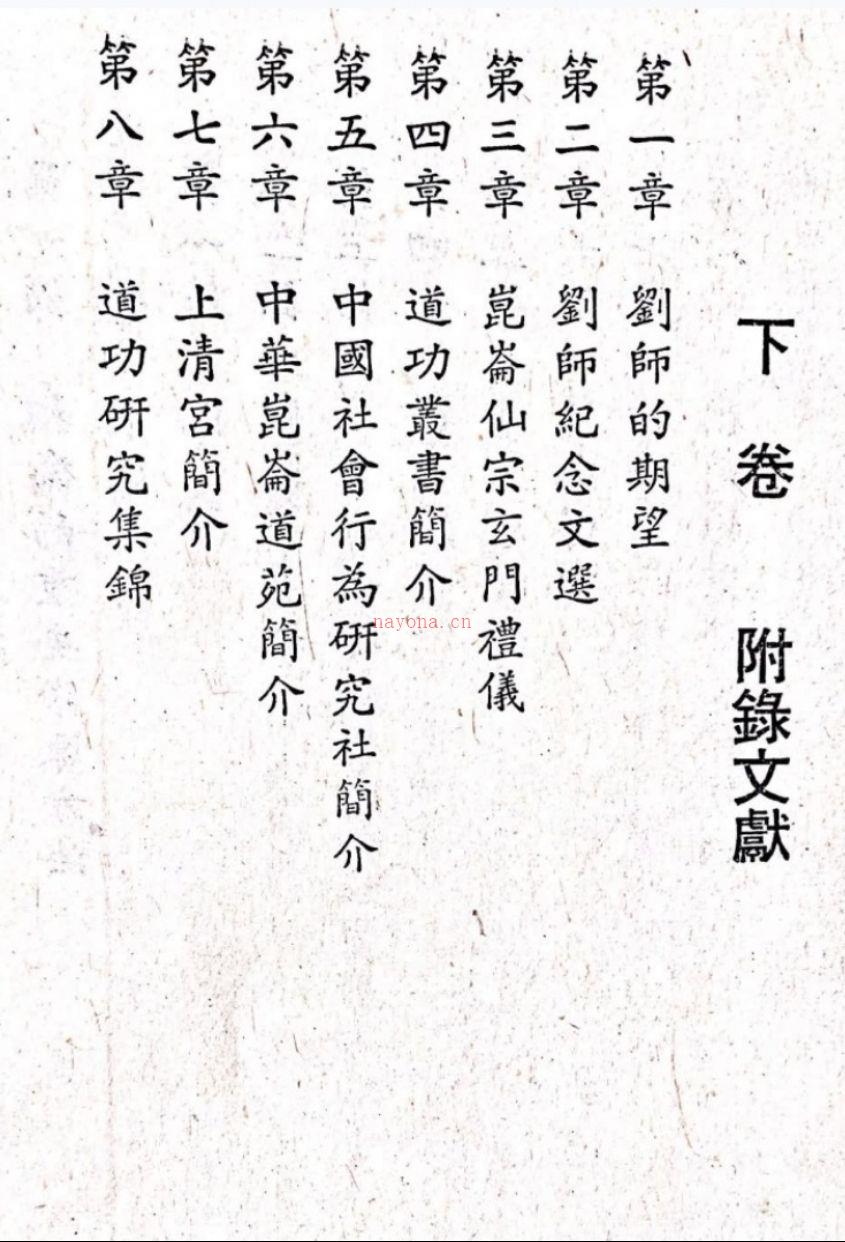 下卷 附錄文獻
第一章 劉師的期望
第二章 劉師紀念文選
第三章 崑崙仙宗玄門禮儀
第四章 道功叢書簡介
第五章 中國社會行為研究社簡介
第六章 中華崑崙道苑簡介
第七章 上清宮簡介
第八章 道功研究集錦
nayona.cn